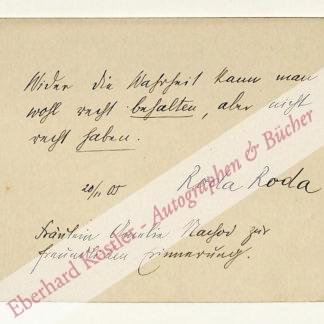 Wider die Wahrheit kann man
wohl recht behalten, aber nicht
recht haben.
20/11 05 Roda Roda
Fräulein Amelie Nachod zur
freundlichen Erinnerung.
Eberhard Köstler - Autographen & Bücher